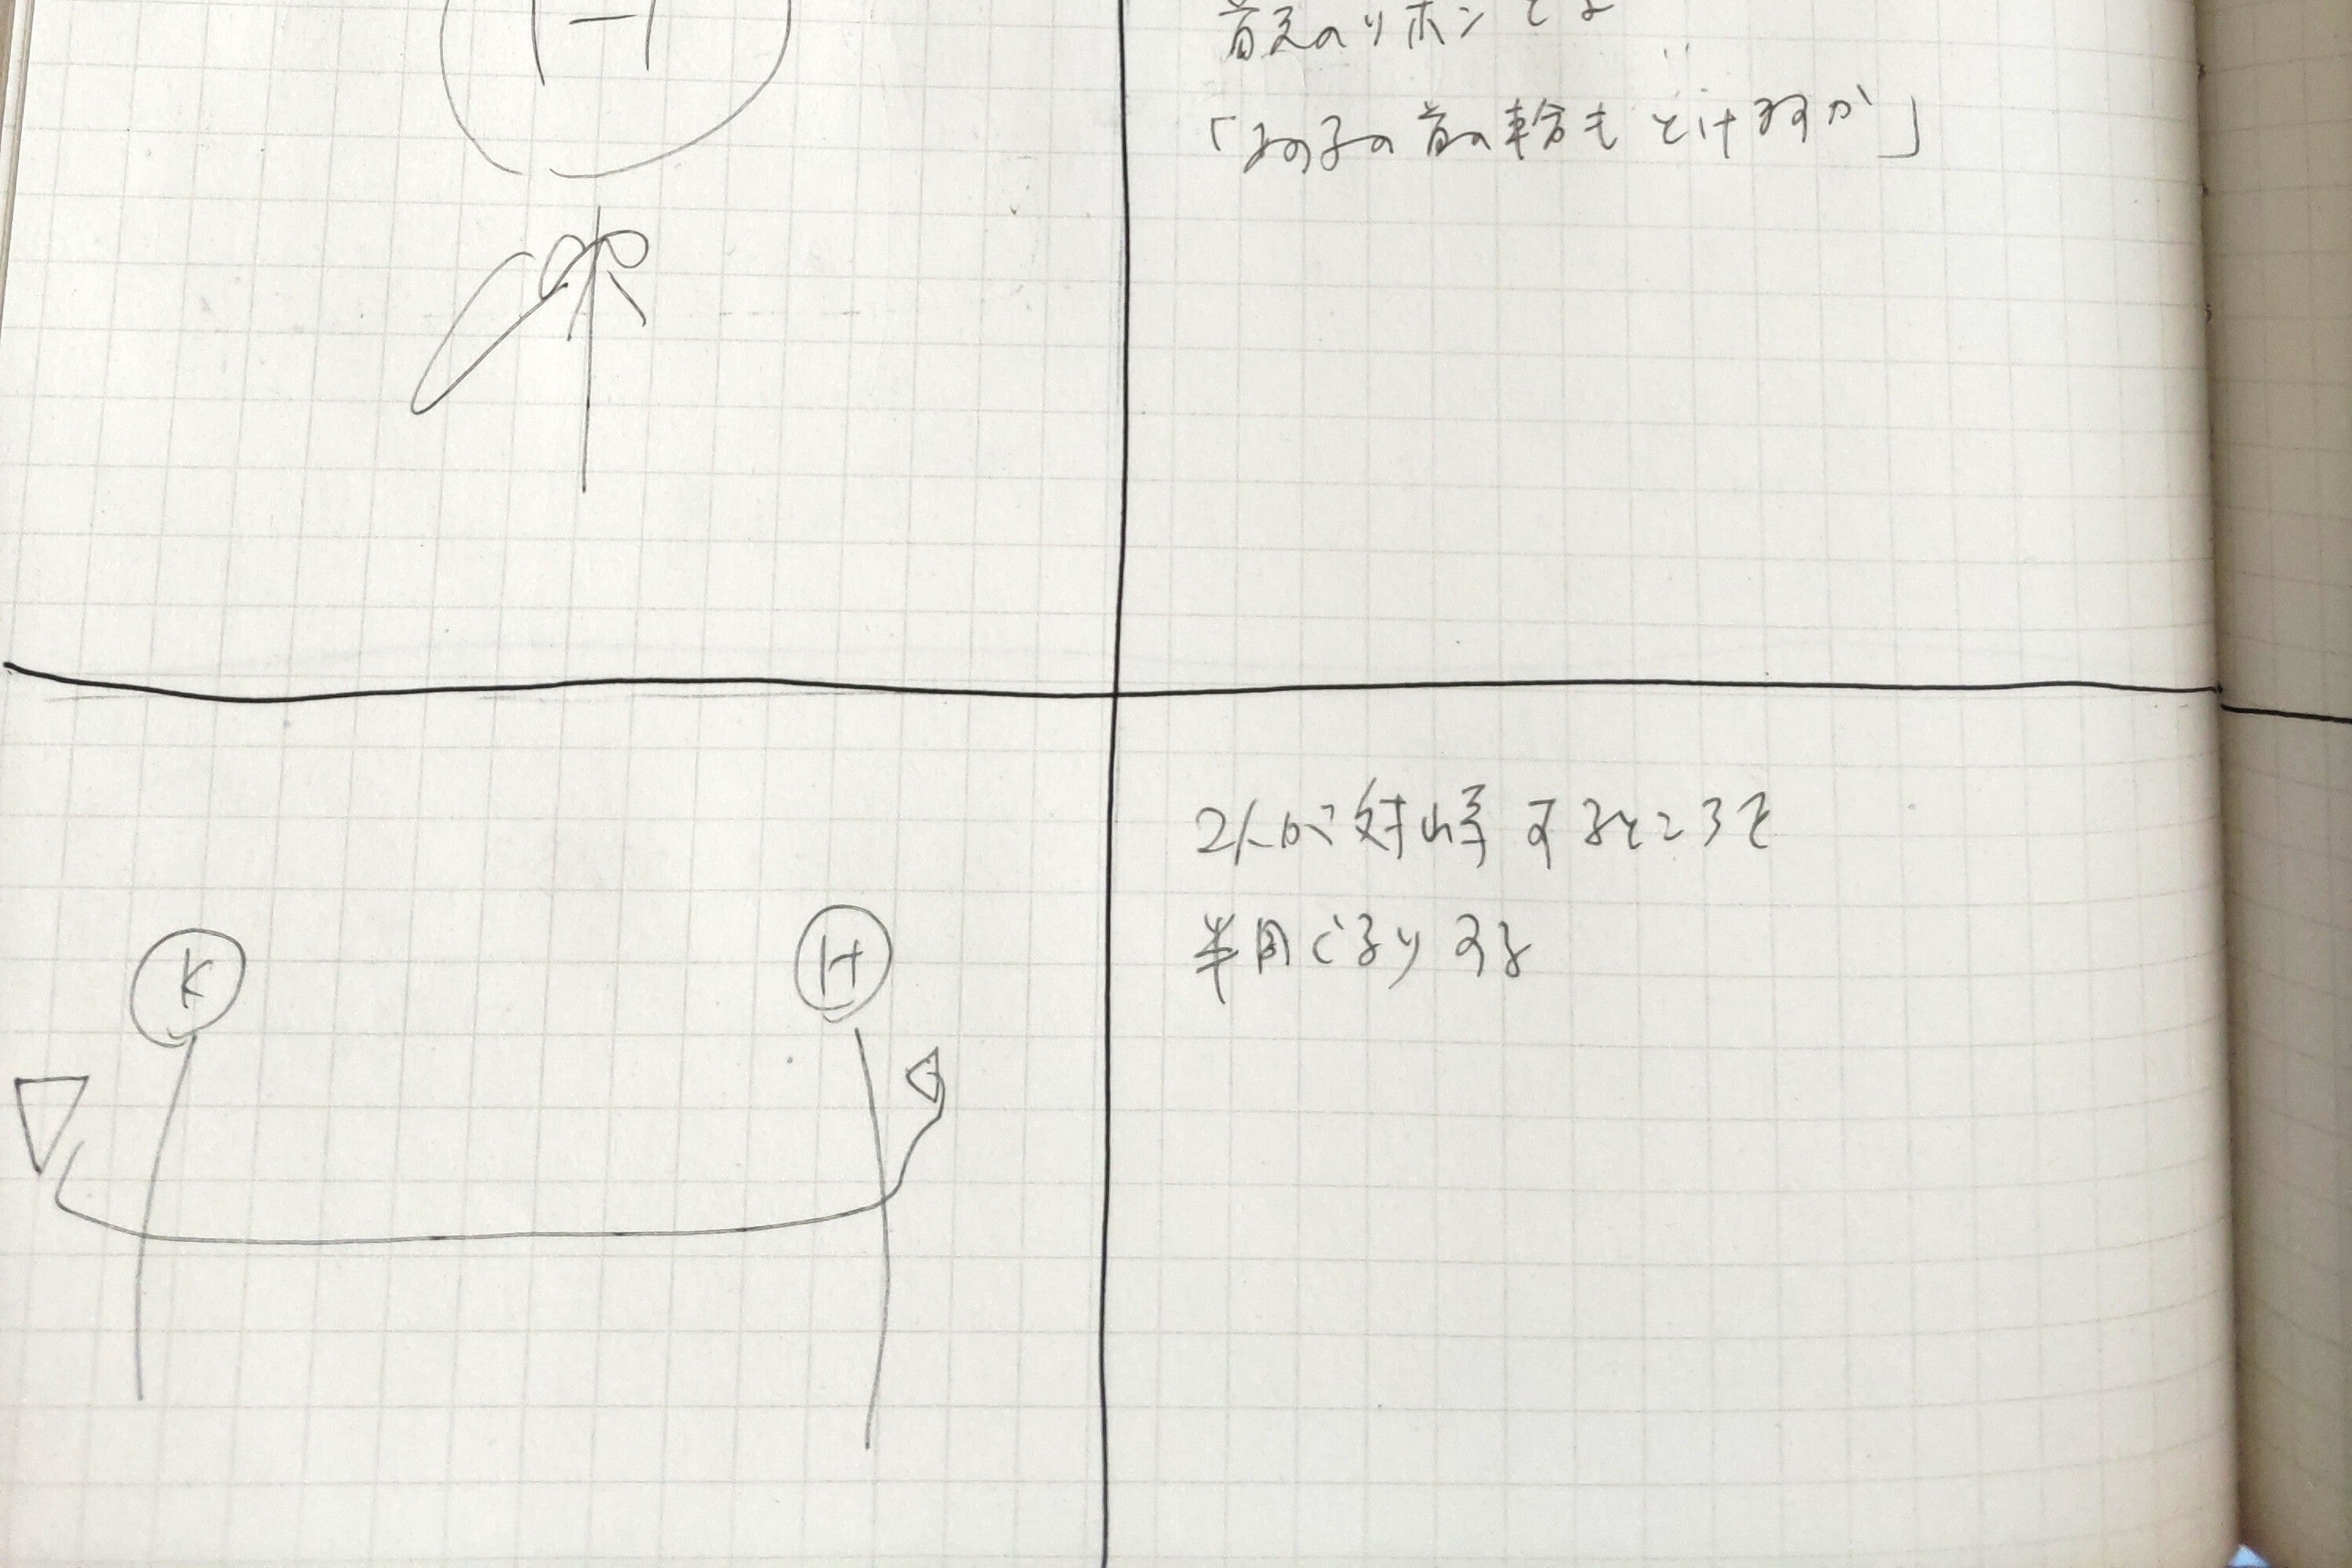 H
首元のリボンとる
「あの子の首の輪も とけるか」
2人が対峙するところを
半円ぐるりする
K
H